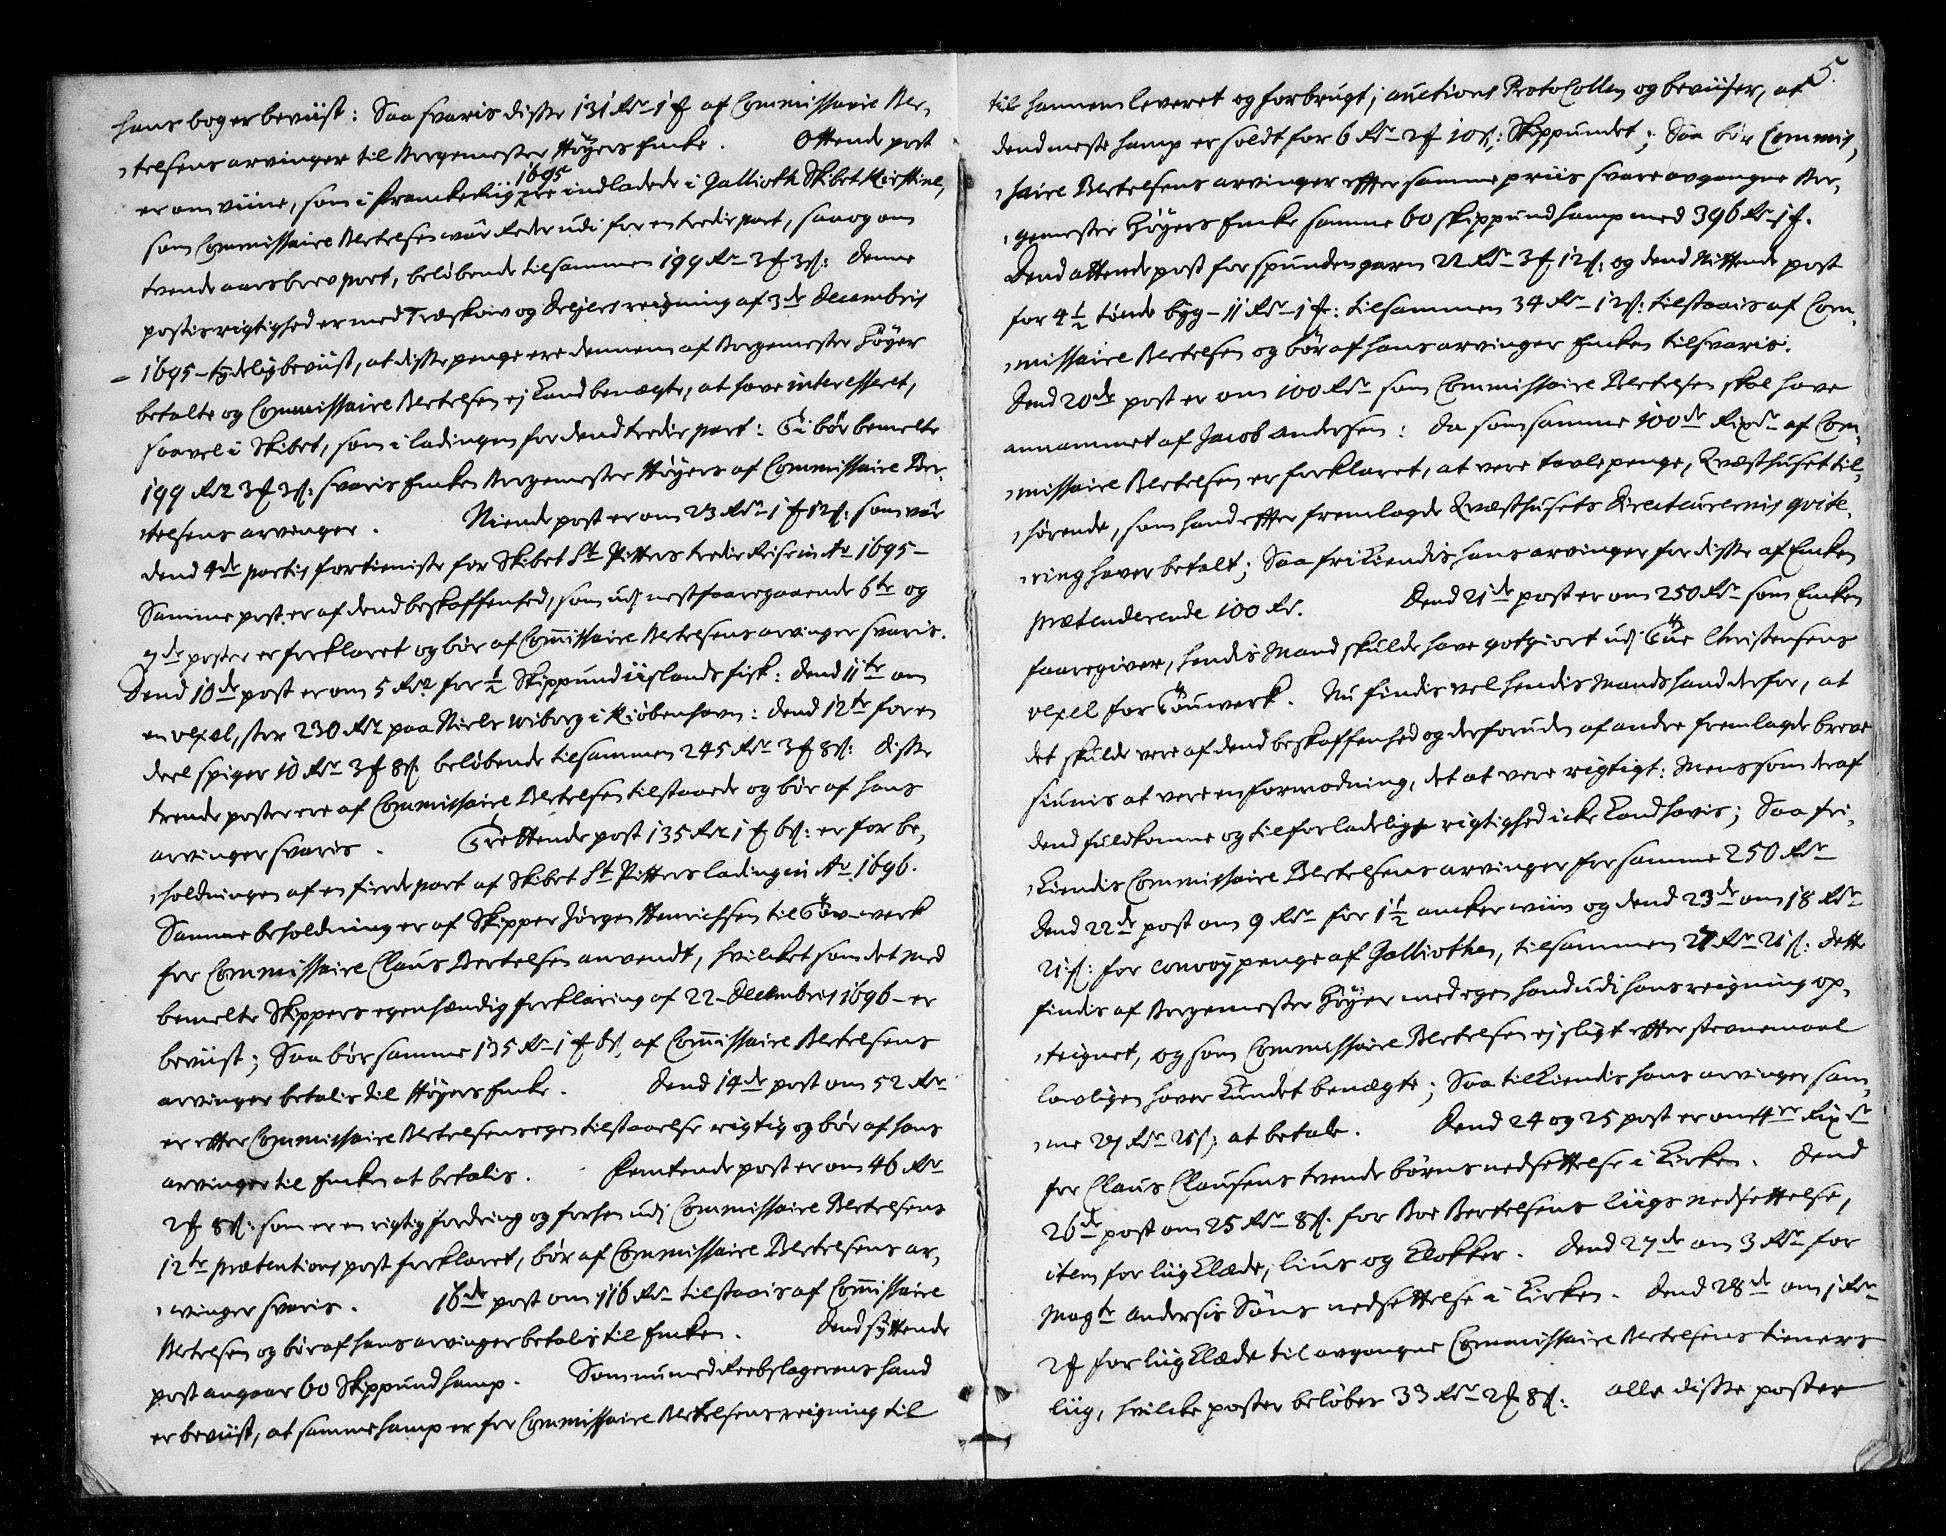 hans bog er beviist: Saa svaris disse 131 Rdr 1 ℔ af Commissarie Ber,
,telsens arvinger til Borgemester Høyers Encke. Ottende post
1695
er om viine, som i Franckerig ere indladede i Gallioth Skibet Kirstine,
som Commissaire Bertelsen vår Reder udi for en tredie part, saa og om
tvende aars brevport, beløbende tilsammen 199 Rdr 3 ℔ 3 ß: Denne
postis rigtighed er med Træskow og Deyers reigning af 3de Decembris
1695 - tydelig beviist, at disse penge ere dennem af Borgemester Höyer
betalte og Commissaire Bertelsen ej kand benægte, at have interesseret,
saavel i Skibet, som i ladingen for dend tredie part: Ti bör bemelte
199 Rdr 3 ℔ 3 ß: svaris Encken Borgemester Høyers af Commissaire Ber,
,telsens arvinger. Niende post er om 23 Rdr 1 ℔ 12 ß: som vår
dend 4de partis fortieniste for Skibet St Pitters tredie Reise in Ao 1695 -
Samme post er af dend beskaffenhed, som udj nestforegaaende 6te og
7de poster er forklaret og bör af Com̄issaire Bertelsens arvinger svaris.
Dend 10de post er om 5 Rdr for ½ Skippund iislands fisk: Dend 11te om
en vexel, stor 230 Rdr paa Niels Wiborg i Kiöbenhavn: Dend 12te for en
deel spiger 10 Rdr 3 ℔ 8 ß beløbende tilsammen 245 Rdr 3 ℔ 8 ß: Disse
trende poster ere af Commissaire Bertelsen tilstaaede og bör af hans
arvinger svaris. Trettende post 135 Rdr 1 ℔ 6 ß: er for be,
,holdningen af en fierde part af Skibet St Pitters lading in Ao 1696.
Samme beholdning er af Skipper Jörgen Henrichsen til Töv-werk
for Commissaire Claus Bertelsen anvendt, hvilcket som det med
bemelte Skippers egenhændig forklaring af 22 - Decembris 1696 - er
beviist; Saa bör samme 135 Rdr 1 ℔ 6 ß, af Com̄issaire Bertelsens
arvinger betalis til Høyers Encke. Dend 14de post om 52 Rdr
er efter Commissaire Bertelsens egen tilstaaelse rigtig og bör af hans
arvinger til Encken at betalis. Femtende post er om 46 Rdr
2 ℔ 8 ß: som er en rigtig fordring og forhen udj Commissaire Bertelsens
12te prætentions post forklaret, bör af Commissaire Bertelsens ar,
,vinger svaris. 16de post om 116 Rdr tilstaais af Com̄issaire
Bertelsen og bör af hans arvinger betalis til Encken. Dend syttende
post angaar 60 Skippund hamp. Som nu med Reebslagerens hand
er beviist, at samme hamp er for Commissaire Bertelsens reigning til
5.
til hannem leveret og forbrugt; auctions Protocollen og beviiser, at
dend meste hamp er soldt for 6 Rdr 2 ℔ 10 ß: Skippundet; Saa bör Commis,
,saire Bertelsens arvinger efter samme priis svare avgangne Bor,
,gemester Höyers Encke samme 60 skippund hamp med 396 Rdr 1 ℔.
Dend attende post for spunden garn 22 Rdr 3 ℔ 12 ß: og dend Nittende post
for 4½ tønde byg - 11 Rdr 1 ℔: tilsammen 34 Rdr 12 ß: tilstaais af Com,
,missaire Bertelsen og bör af hans arvinger Encken tilsvaris.
Dend 20de post er om 100 Rdr som Commissaire Bertelsen skal have
annammet af Jacob Andersen: Da som samme 100de Rixdr af Com,
,missaire Bertelsen er forklaret, at vere tavlepenge, Qvæsthuset til,
,hørende, som hand efter fremlagde Qvæsthusets Directeurernis qvite,
,ring haver betalt; Saa frikiendis hans arvinger for disse af Encken
prætenderende 100 Rdr. Dend 21de post er om 250 Rdr som Encken
foregiver, hendis Mand skulde have gotgiort udj Tüe Christensens
vexel for Töuwerk. Nu findis vel hendis Mands hand derfor, at
det skulde vere af dend beskaffenhed og derforuden af andre fremlagde breve
siunis at vere en formodning, det at vere rigtigt: Mens som deraf
dend fuldkomne og tilforladelige rigtighed icke kand havis; Saa fri,
,kiendis Commissaire Bertelsens arvinger for samme 250 Rdr
Dend 22de post om 9 Rdr for 1½ ancker wiin og dend 23de om 18 Rdr
21 ß: for convoy penge af Galliothen, tilsammen 27 Rdr 21 ß: Dette
findis af Borgemester Höyer med egen hand udi hans reigning op,
,teignet, og som Commissaire Bertelsen ej sligt efter stevnemaal
lovligen haver kundet benægte; Saa tilkiendis hans arvinger sam,
,me 27 Rdr 21 ß: at betale. Dend 24 og 25 post er om Rixdr
for Claus Clausens tvende børns nedsettelse i Kirken. Dend
26de post om 25 Rdr 8 ß. for Boe Bertelsens liigs nedsettelse,
item for liigklæde, lius og klokker. Dend 27de om 3 Rdr for
Magte Andersis Söns nedsettelse i Kirken. Dend 28de om 1 Rdr
2 ℔ for liigklæde til avgangne Commissaire Bertelsens tieners
liig, hvilcke poster beløber 33 Rdr 2 ℔ 8 ß: Alle disse poster